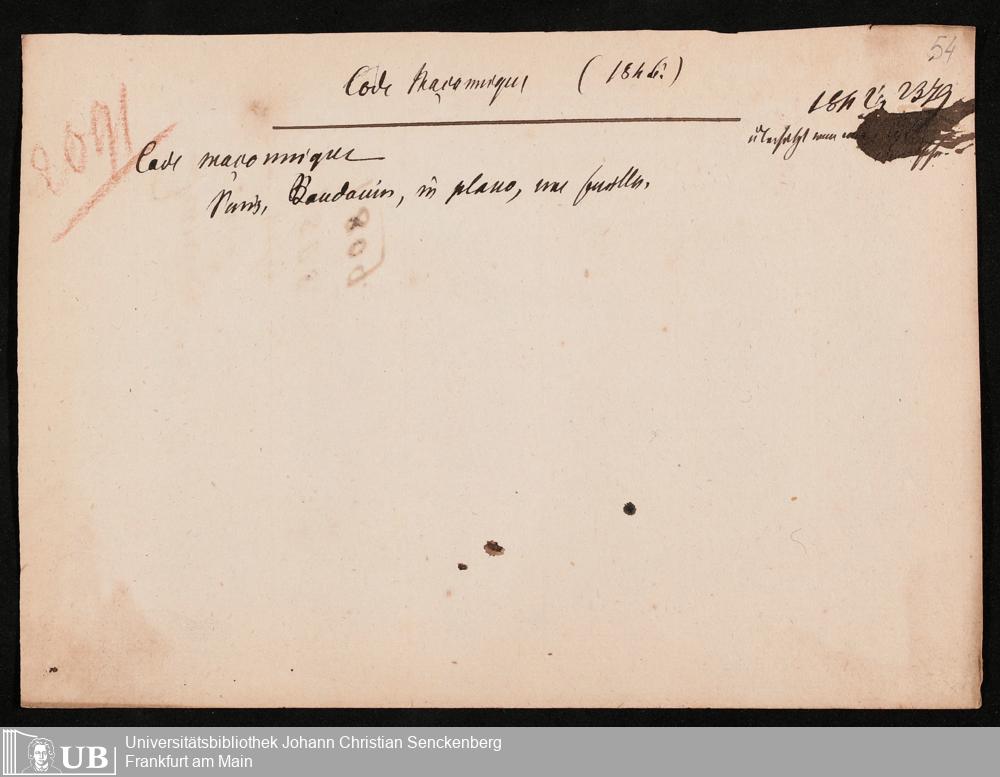 54
Code Maçonnique (1846.)
2379
8071
Code maçonnique
Paris, Baudouin, in plano, une feuille.
UB
Universitätsbibliothek Johann Christian Senckenberg
Frankfurt am Main